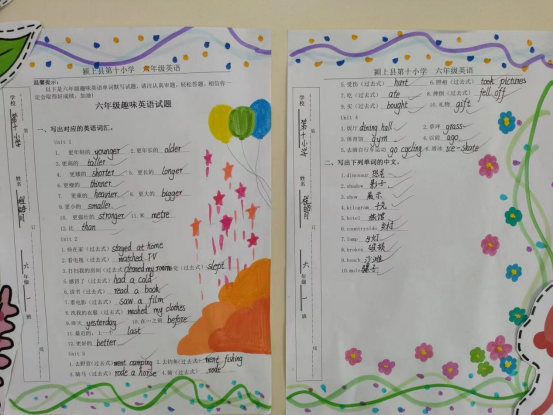 颍上县第十小学 六年级英语
温馨提示：
以下是六年级趣味英语单词默写试题，请注认真审题，轻松答题，相信你一定会取得好成绩，加油！
六年级趣味英语试题
一、写出对应的英语词汇。
Unit 1
1. 更年轻的 younger 2. 更年长的 older
3. 更高的 taller
4. 更矮的 shorter 5. 更长的 longer
6. 更瘦的 thinner
7. 更重的 heavier 8. 更大的 bigger
9. 更小的 smaller
10. 更强壮的 stronger 11. 米 metre
12. 比 than
Unit 2
1. 待在家（过去式） stayed at home
2. 看电视（过去式） watched TV
3. 打扫我的房间（过去式） cleaned my room （过去式） slept
4. 感冒了（过去式） had a cold
5. 读书（过去式） read a book
7. 看电影（过去式） saw a film
8. 洗我的衣服（过去式） washed my clothes
9. 昨天 yesterday 10. 在…之前 before
11. 最近的；上一个 last
12. 更好的 better
Unit 3
1. 去野营（过去式） went camping 2. 去钓鱼（过去式） went fishing
3. 骑马（过去式） rode a horse 4. 骑（过去式） rode
学校 第十小学
姓名
六年级 一 班
颍上县第十小学 六年级英语
5. 受伤（过去式） hurt 6. 照相（过去式） took pictures
7. 吃（过去式） ate 8. 摔倒（过去式） fell off
9. 买（过去式） bought 10. 礼物 gift
Unit 4
1. 饭厅 dining hall 2. 草坪 grass
3. 体育馆 gym 4. ago
5. 去骑自行车运动 go cycling 6. 滑冰 ice-skate
二、写出下列单词的中文。
1. dinosaur 恐龙
2. shadow 影子
3. show 展示
4. kilogram 千克
6. hotel 旅馆
6. countryside 乡村
7. lamp 台灯
8. broken 破损
9. beach 沙滩
10. mule 骡子
学校 第十小学
姓名
六年级 一 班